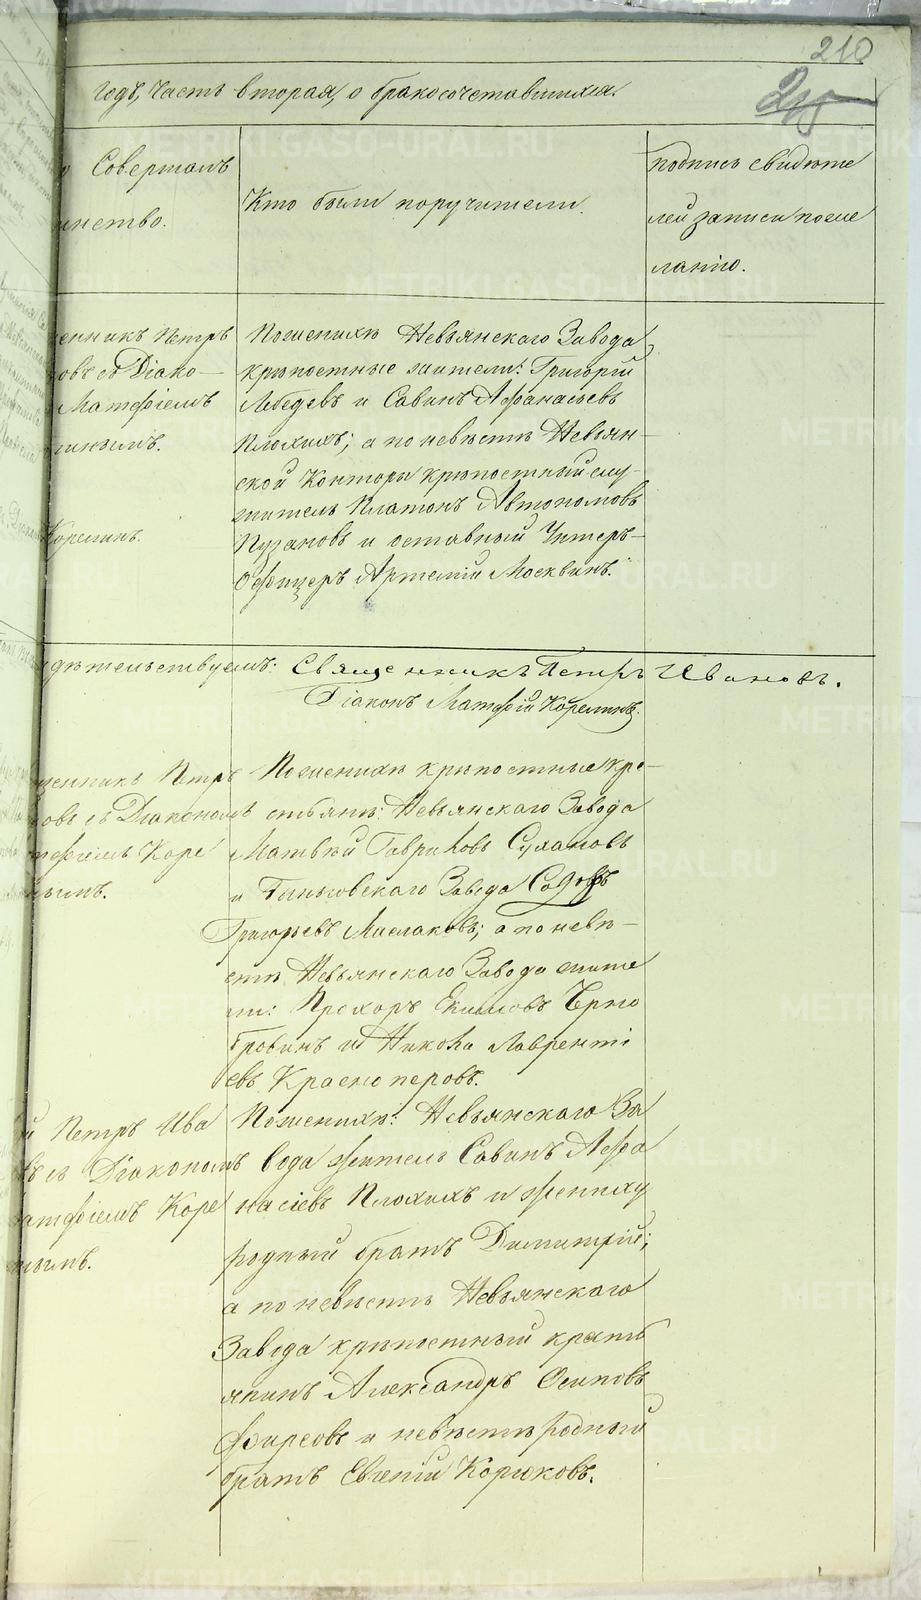 210
годъ, часть вторая, о бракосочетавшихся.
Совершалъ
инство.
Кто были поручители.
подпись свидѣте
лей записи по же
ланію.
енникъ Петръ
овъ съ Діако-
Матфіемъ
инымъ.
Корелинъ.
По женихѣ Невьянскаго Завода
крѣпостные жители: Григорій
Лебедевъ и Савинъ Афанасьевъ
Плохихъ; а по невѣстѣ Невьян-
ской Конторы крѣпостный слу-
житель Платонъ Автономовъ
Пузановъ и оставный Унтеръ-
Офицеръ Артемій Москвинъ.
дѣтельствуемъ: Священникъ Петръ Ивановъ.
Діаконъ Матфій Корелинъ.
щенникъ Петръ
овъ съ Діакономъ
тфіемъ Коре
нымъ.
По женихѣ крѣпостные кре-
стьяне: Невьянскаго Завода
Матвѣй Гавриловъ Сухановъ
и Завода
Григорьевъ Мислаковъ; а по невѣ-
стѣ Невьянскаго Завода жите
ли: Прохоръ Екимовъ Черно
бровинъ и Никола Лавренті
евъ Красноперовъ.
й Петръ Ива
въ съ Діакономъ
атфіемъ Коре
нымъ.
По женихѣ: Невьянскаго За
вода житель Савинъ Афа
насіевъ Плохихъ и жениху
родный братъ Димитрій;
а по невѣстѣ Невьянскаго
Завода крѣпостный крест
янинъ Александръ Осиповъ
Фирсовъ и невѣстѣ родный
братъ Евгеній Корюковъ.
METRIKI.GASO-URAL.RU